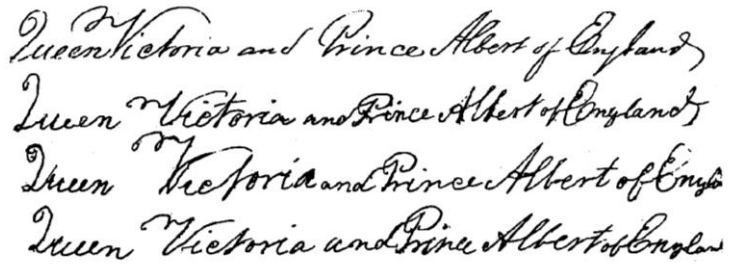 Queen Victoria and Prince Albert of England
Queen Victoria and Prince Albert of England
Queen Victoria and Prince Albert of Engla
Queen Victoria and Prince Albert of Englan